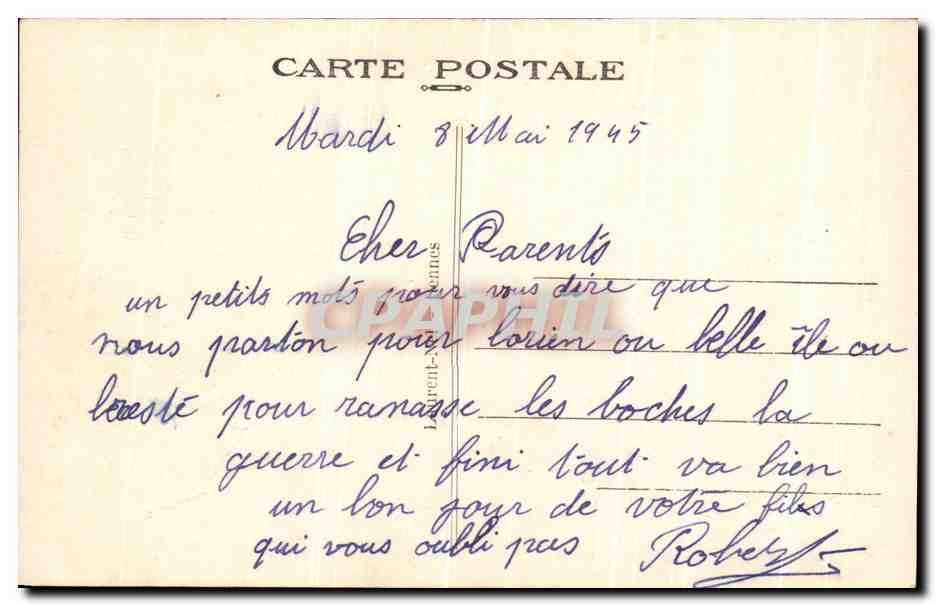 CARTE POSTALE
Mardi 8 Mai 1945
Cher Parents
un petits mots pour vous dire que
nous parton pour lorien ou belle île ou
breste pour ramasse les boches la
guerre et fini tout va bien
un bon jour de votre fils
qui vous oubli pas Robert
Laurent-N Rennes
CPAPHIL